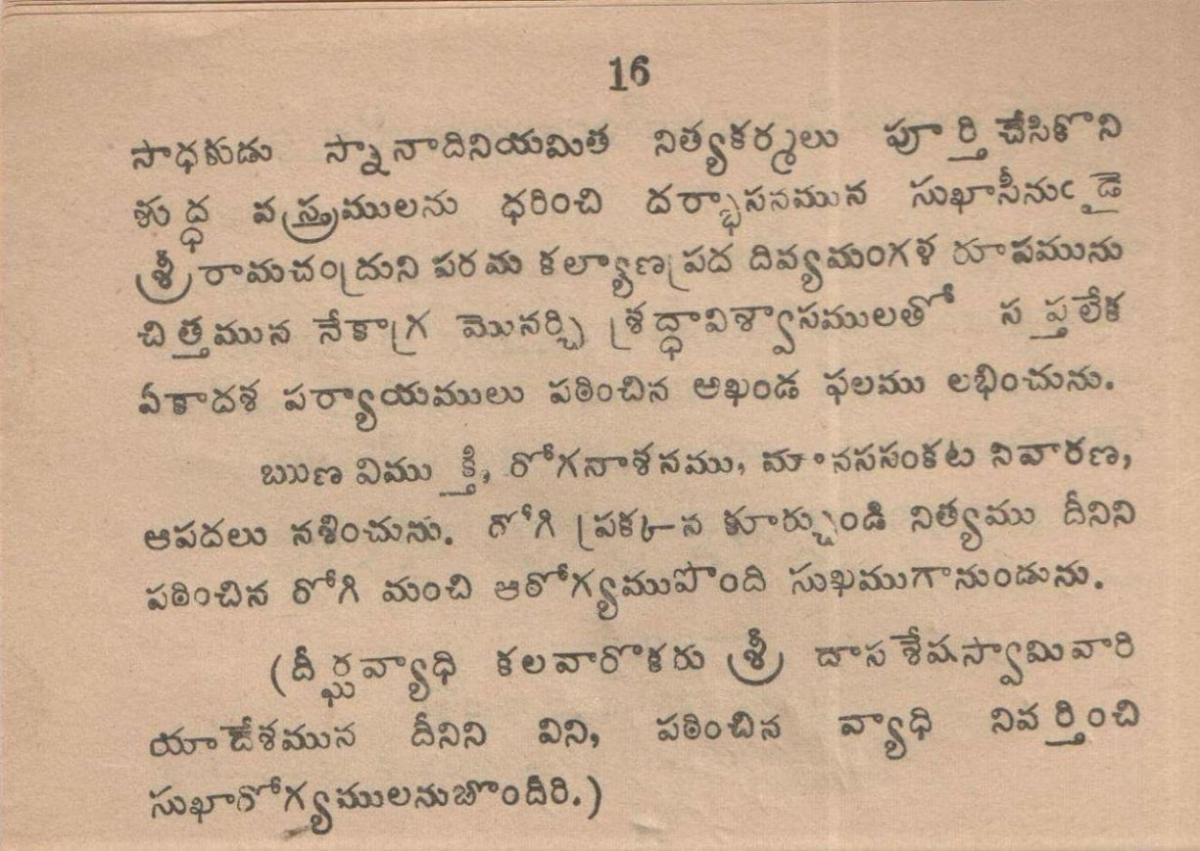 16
సాధకుడు స్నానాదినియమిత నిత్యకర్మలు పూర్తిచేసికొని
శుద్ధ వస్త్రములను ధరించి దర్భాసనమున సుఖాసీనుఁడై
శ్రీరామచంద్రుని పరమ కల్యాణప్రద దివ్యమంగళ రూపమును
చిత్తమున నేకాగ్ర మొనర్చి శ్రద్ధావిశ్వాసములతో సప్తలేక
ఏకాదశ పర్యాయములు పఠించిన అఖండ ఫలము లభించును.
ఋణ విముక్తి, రోగనాశనము, మానససంకట నివారణ,
ఆపదలు నశించును. రోగి ప్రక్కన కూర్చుండి నిత్యము దీనిని
పఠించిన రోగి మంచి ఆరోగ్యముపొంది సుఖముగానుండును.
(దీర్ఘవ్యాధి కలవారొకరు శ్రీ దాసశేషస్వామివారి
యాదేశమున దీనిని విని, పఠించిన వ్యాధి నివర్తించి
సుఖారోగ్యములనుబొందిరి.)